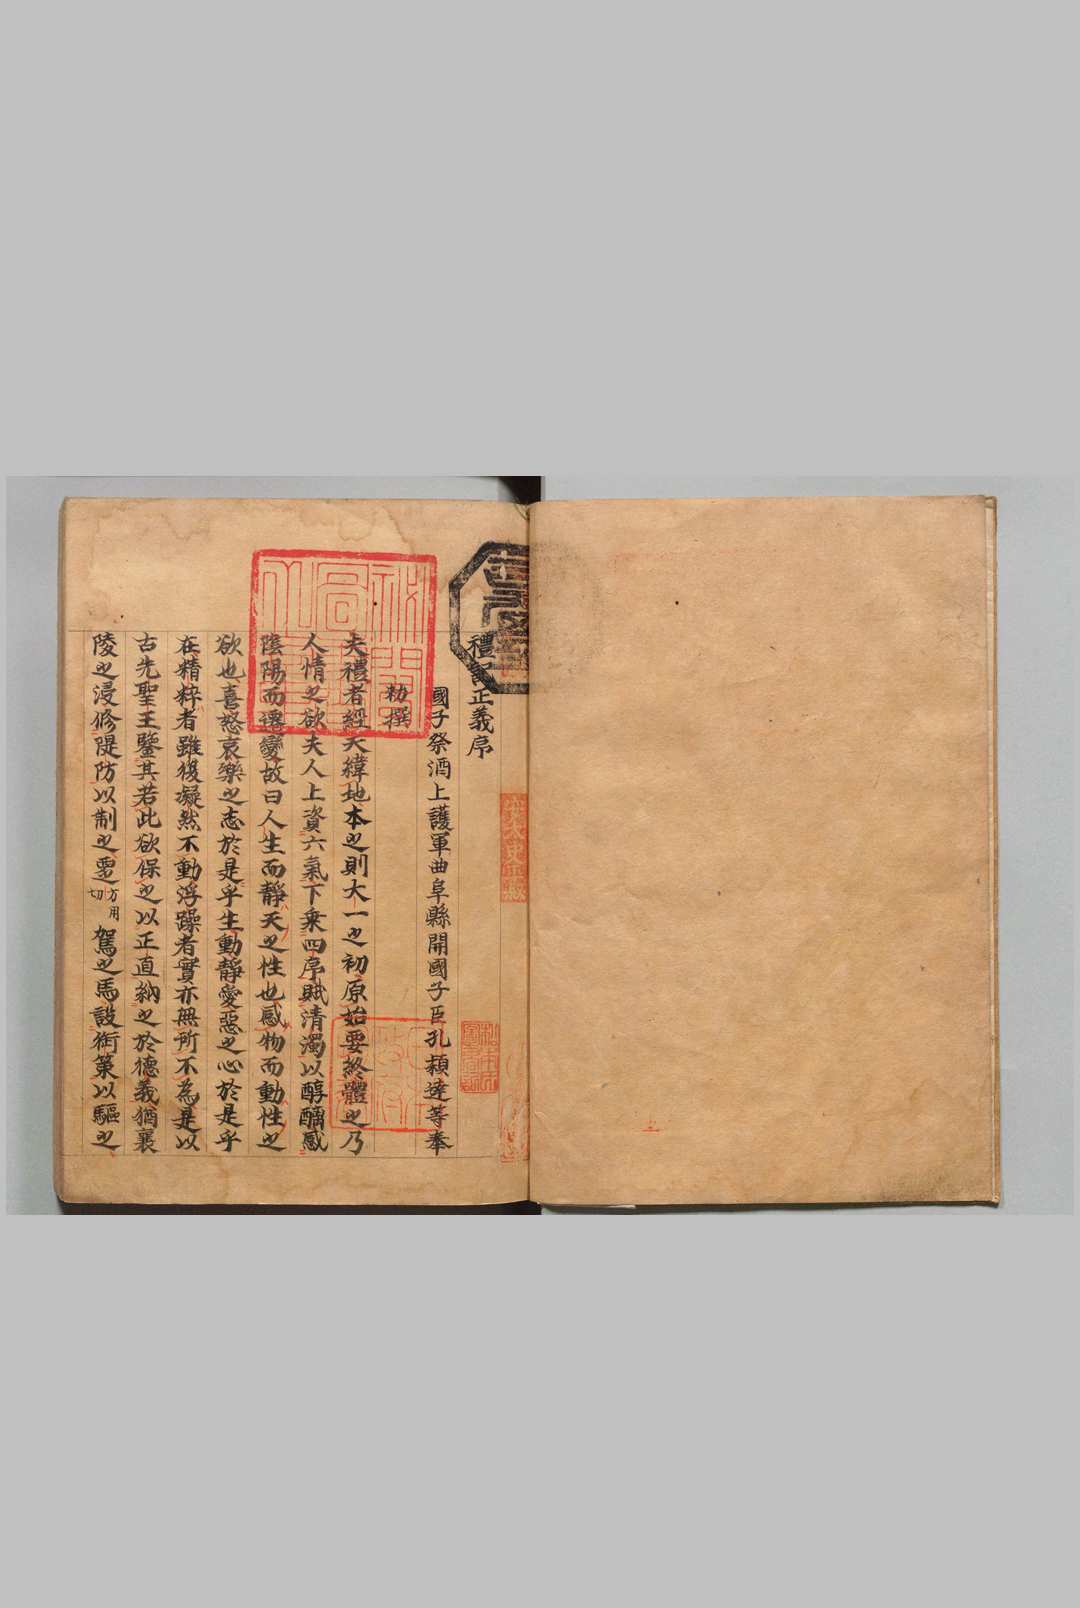 禮記正義序
國子祭酒上護軍曲阜縣開國子臣孔穎達等奉
勑撰
夫禮者經天緯地本之則大一之初原始要終體之乃
人情之欲夫人上資六氣下乘四序賦清濁以醇醨感
陰陽而遷變故曰人生而靜天之性也感物而動性之
欲也喜怒哀樂之志於是乎生動靜愛惡之心於是乎
在精粹者雖復凝然不動浮躁者實亦無所不為是以
古先聖王鑒其若此欲保之以正直納之於德義猶襄
陵之浸修隄防以制之覂方用切駕之馬設銜策以驅之